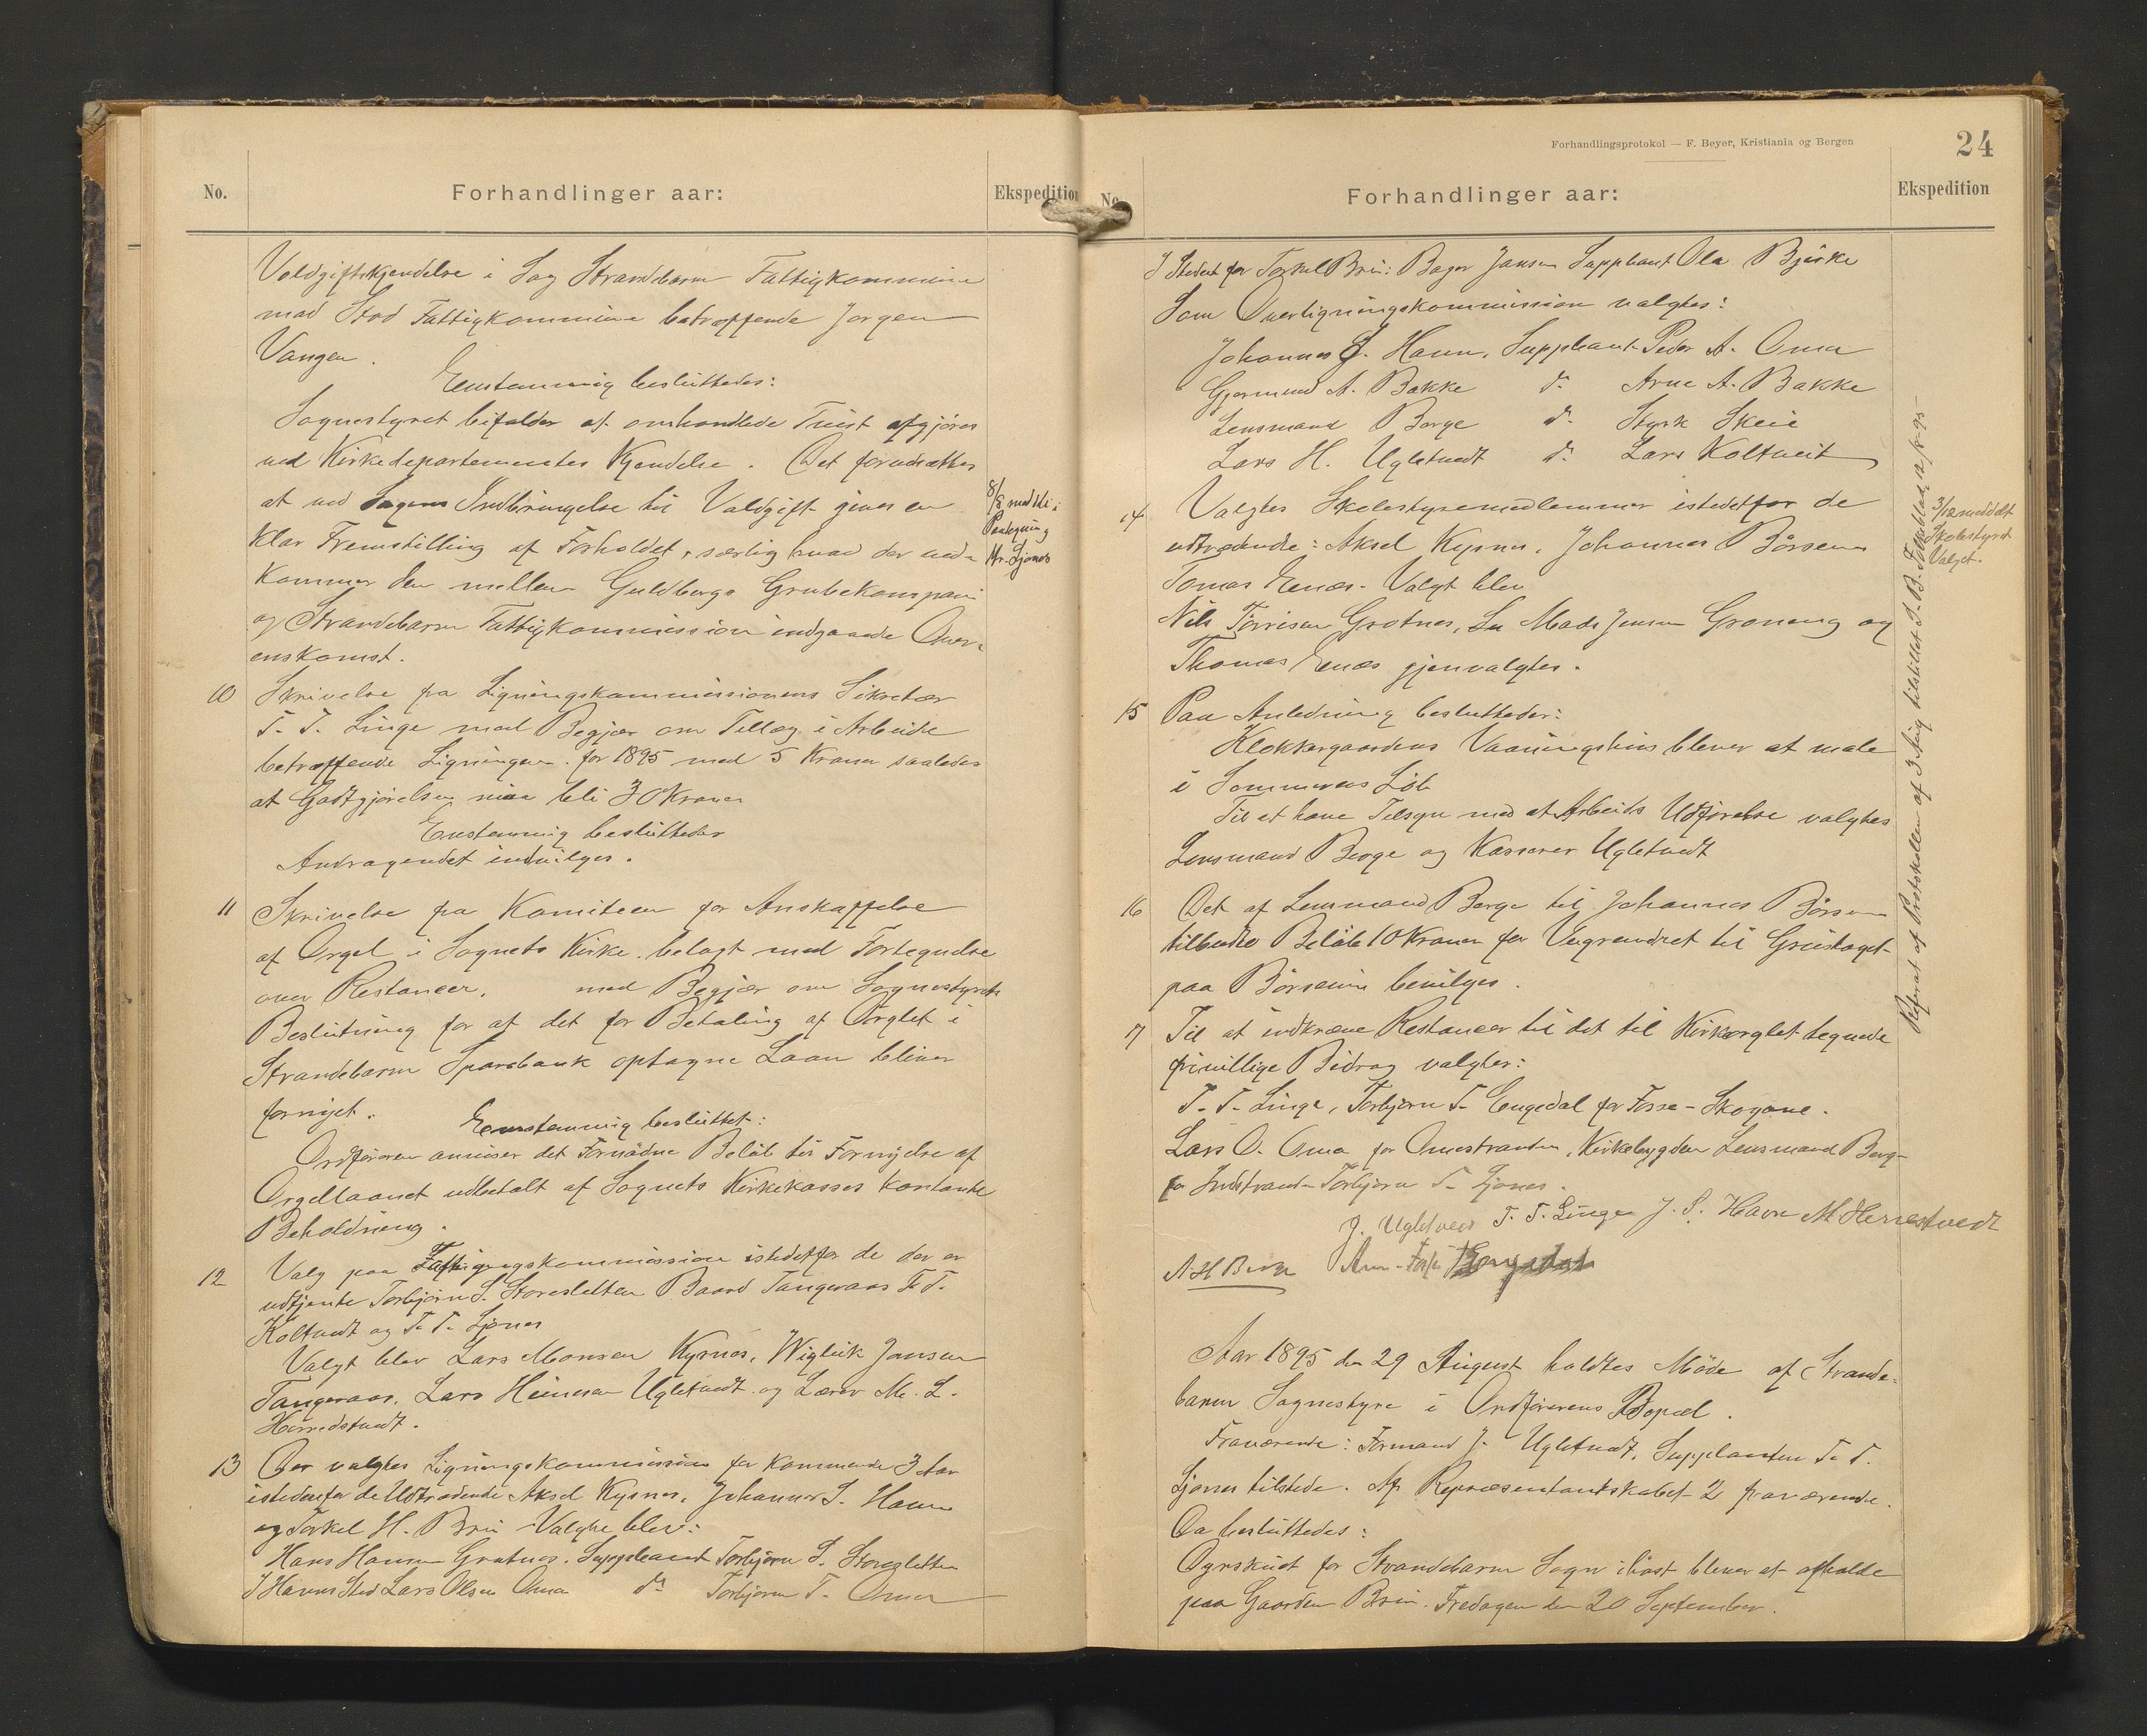 No.
Forhandlinger aar:
Ekspedition
Voldgiftskjendelse i Sag Strandebarm Fattigkommune
mod Stod Fattigkommune betræffende Jørgen
Vangen.
Enstemmig besluttedes:
Sognestyret bifalder at omhandlede Tvist afgjøres
ved Kirkedepartementets Kjendelse. Det forudsættes
at ved Sagens Indbringelse til Voldgift gives en
klar Fremstilling af Forholdet, særlig hvad der ved-
kommer den mellem Guldbergs Grubekompani
og Strandebarm Fattigkommission indgaaede Over-
enskomst.
8/8 meddelt i
Paategning
Hr. Ljones
10 Skrivelse fra Ligningskommissionens Sekretær
T. T. Linge med Begjær om Tillæg i Arbeide
betræffende Ligningen for 1895 med 5 Kroner saaledes
at Godtgjørelsen maa bli 30 Kroner
Enstemmig besluttedes
Andragendet indvilges.
11 Skrivelse fra Komiteen for Anskaffelse
af Orgel i Sognets Kirke belagt med Fortegnelse
over Restancer, med Begjær om Sognestyrets
Beslutning for at det for Betaling af Orglet i
Strandebarm Sparebank optagne Laan bliver
fornyet.
Enstemmig besluttet:
Ordføreren anviser det Fornødne Beløb til Fornyelse af
Orgellaanet udbetalt af Sognets Kirkekasses kontante
Beholdning.
12 Valg paa Fattigkommission istedetfor de der er
udtjente Torbjørn S. Storesletten Baard Tangeraas T. T.
Koltvedt og T. T. Ljones
Valgt blev Lars Monsen Kysnes, Wiglik Jansen
Tangeraas, Lars Heinesen Ugletvedt og Lærer M. L.
Herredstvedt.
13 Der valgtes Ligningskommission for kommende 3 Aar
istedenfor de Udtrædende Aksel Kysnes, Johannes S. Haun
og Torkel H. Brui Valgte blev:
Hans Hansen Grotnes. Suppleant Torbjørn S. Storesletten
I Hauns Sted Lars Olsen Oma do Torbjørn T. Oma
Forhandlingsprotokol — F. Beyer, Kristiania og Bergen
24
No.
Forhandlinger aar:
Ekspedition
I Stedet for Torkel Brui: Bager Jansen Suppleant Ola Bjørke
Som Overligningskommission valgtes:
Johannes S. Haun, Suppleant Peder A. Oma
Gjermund A. Bakke do Arne A. Bakke
Lensmand Berge do Styrk Skeie
Lars H. Ugletvedt do Lars Koltveit
14 Valgtes Skolestyremedlemmer istedetfor de
udtrædende: Aksel Kysnes, Johannes Børsem
Tomas Enæs. Valgt blev
Nils Tørrisen Grotnes, Mads Jensen Groneng og
Thomas Enæs gjenvalgtes.
3/12 meddelt
Skolestyret
Valget.
15 Paa Anledning besluttedes:
Klokkergaardens Vaaningshus bliver at male
i Sommerens Løb
Til at have Tilsyn med at Arbeids Udførelse valgtes
Lensmand Berge og Kasserer Ugletvedt
16 Det af Lensmand Berge til Johannes Børsem
tilbudte Beløb 10 Kroner for Vegrendret til Grustaget
paa Børsem bevilges.
17 Til at indkræve Restancer til det til Kirkeorglet tegnede
frivillige Bidrag valgtes:
T. T. Linge, Torbjørn T. Engedal for Fosse-Skogane.
Lars O. Oma for Omestranden, Kirkebygden Lensmand Berge
for Indstranden Torbjørn T. Ljones.
J. Ugletveit T. T. Linge J. S. Haun M Herrestvedt
A H Berge Engedal
Referat af Protokollen af 3 Aug tilstillet S. B. Folkeblad 12/8-95-
Aar 1895 den 29 August holdtes Møde af Strande-
barm Sognestyre i Ordførerens Bopæl.
Fraværende: Formand J. Ugletvedt, Suppleanten T. T.
Ljones tilstede. Af Repræsentantskabet 2 fraværende.
Da besluttedes:
Dyrskuet for Strandebarm Sogn ihøst bliver at afholde
paa Gaarden Brui Fredagen den 20 September.